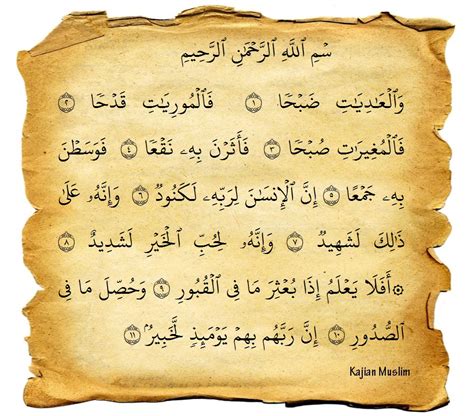 بِسْمِ اللَّهِ الرَّحْمَٰنِ الرَّحِيمِ
وَالْعَٰدِيَٰتِ ضَبْحًا ١ فَالْمُورِيَٰتِ قَدْحًا ٢
فَالْمُغِيرَٰتِ صُبْحًا ٣ فَأَثَرْنَ بِهِۦ نَقْعًا ٤ فَوَسَطْنَ
بِهِۦ جَمْعًا ٥ إِنَّ الْإِنسَٰنَ لِرَبِّهِۦ لَكَنُودٌ ٦ وَإِنَّهُۥ عَلَىٰ
ذَٰلِكَ لَشَهِيدٌ ٧ وَإِنَّهُۥ لِحُبِّ الْخَيْرِ لَشَدِيدٌ ٨
۞ أَفَلَا يَعْلَمُ إِذَا بُعْثِرَ مَا فِى الْقُبُورِ ٩ وَحُصِّلَ مَا فِى
الصُّدُورِ ١٠ إِنَّ رَبَّهُم بِهِمْ يَوْمَئِذٍ لَّخَبِيرٌۢ ١١
Kajian Muslim